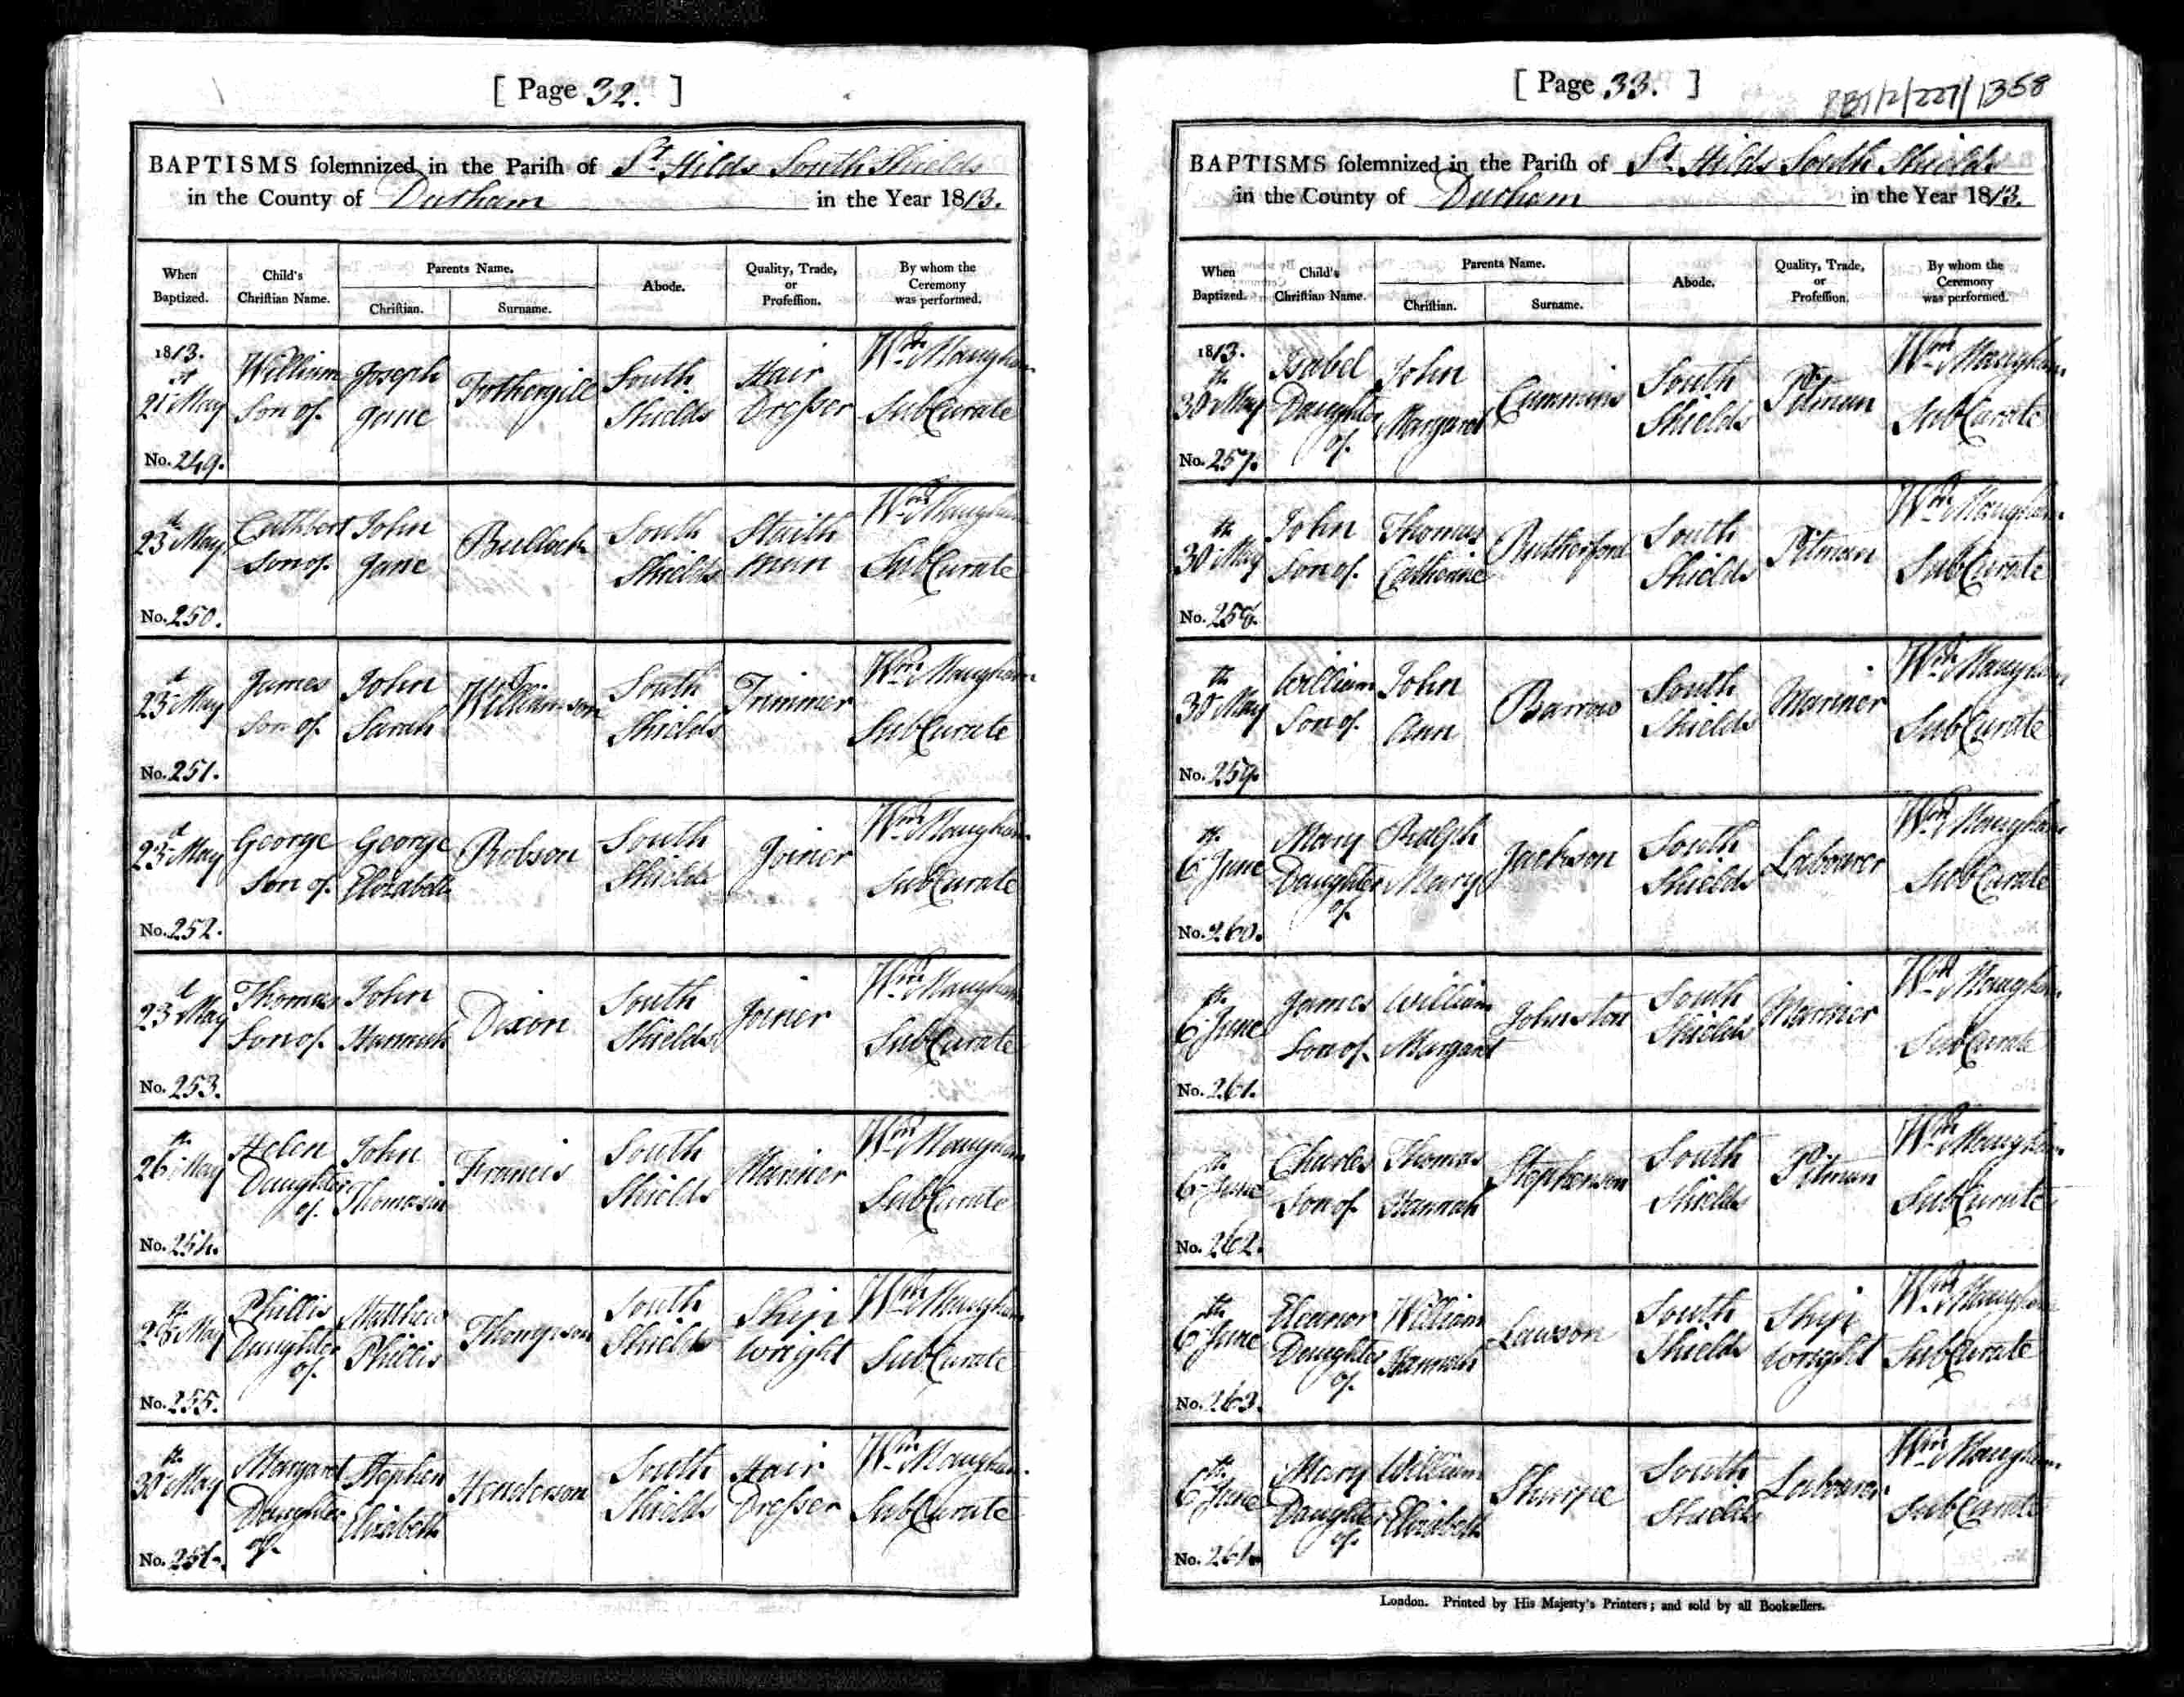 [ Page 32. ]
BAPTISMS ſolemnized in the Pariſh of St. Hilds South Shields
in the County of Durham in the Year 1813.
When Baptized. Child's Chriſtian Name. Parents Name. Chriſtian. Surname. Abode. Quality, Trade, or Profeſſion. By whom the Ceremony was performed.
1813.
21st May William Joseph Fothergill South Hair Wm. Maughan
Son of Jane Shields Dresser SubCurate
No. 249.
23d May Cuthbert John Bullock South Staith Wm. Maughan
Son of Jane Shields man SubCurate
No. 250.
23d May James John Williamson South Trimmer Wm. Maughan
Son of Sarah Shields SubCurate
No. 251.
23d May George George Robson South Joiner Wm. Maughan
Son of Elizabeth Shields SubCurate
No. 252.
23d May Thomas John Dixon South Joiner Wm. Maughan
Son of Hannah Shields SubCurate
No. 253.
26th May Helen John Francis South Mariner Wm. Maughan
Daughter of Thomasin Shields SubCurate
No. 254.
28th May Phillis Matthew Thompson South Ship Wm. Maughan
Daughter of Phillis Shields wright SubCurate
No. 255.
30th May Margaret Stephen Henderson South Hair Wm. Maughan
Daughter of Elizabeth Shields Dresser SubCurate
No. 256.
[ Page 33. ]
1358
BAPTISMS ſolemnized in the Pariſh of St. Hilds South Shields
in the County of Durham in the Year 1813.
When Baptized. Child's Chriſtian Name. Parents Name. Chriſtian. Surname. Abode. Quality, Trade, or Profeſſion. By whom the Ceremony was performed.
1813.
30th May Isabel John Cummins South Pitman Wm. Maughan
Daughter of Margaret Shields SubCurate
No. 257.
30th May John Thomas Rutherford South Pitman Wm. Maughan
Son of Catherine Shields SubCurate
No. 258.
30th May William John Barrow South Mariner Wm. Maughan
Son of Ann Shields SubCurate
No. 259.
6th June Mary Ralph Jackson South Labourer Wm. Maughan
Daughter of Mary Shields SubCurate
No. 260.
6th June James William Johnston South Mariner Wm. Maughan
Son of Margaret Shields SubCurate
No. 261.
6th June Charles Thomas Stephenson South Pitman Wm. Maughan
Son of Hannah Shields SubCurate
No. 262.
6th June Eleanor William Lawson South Ship Wm. Maughan
Daughter of Hannah Shields wright SubCurate
No. 263.
6th June Mary William Sharpe South Labourer Wm. Maughan
Daughter of Elizabeth Shields SubCurate
No. 264.
London. Printed by His Majesty's Printers; and sold by all Booksellers.